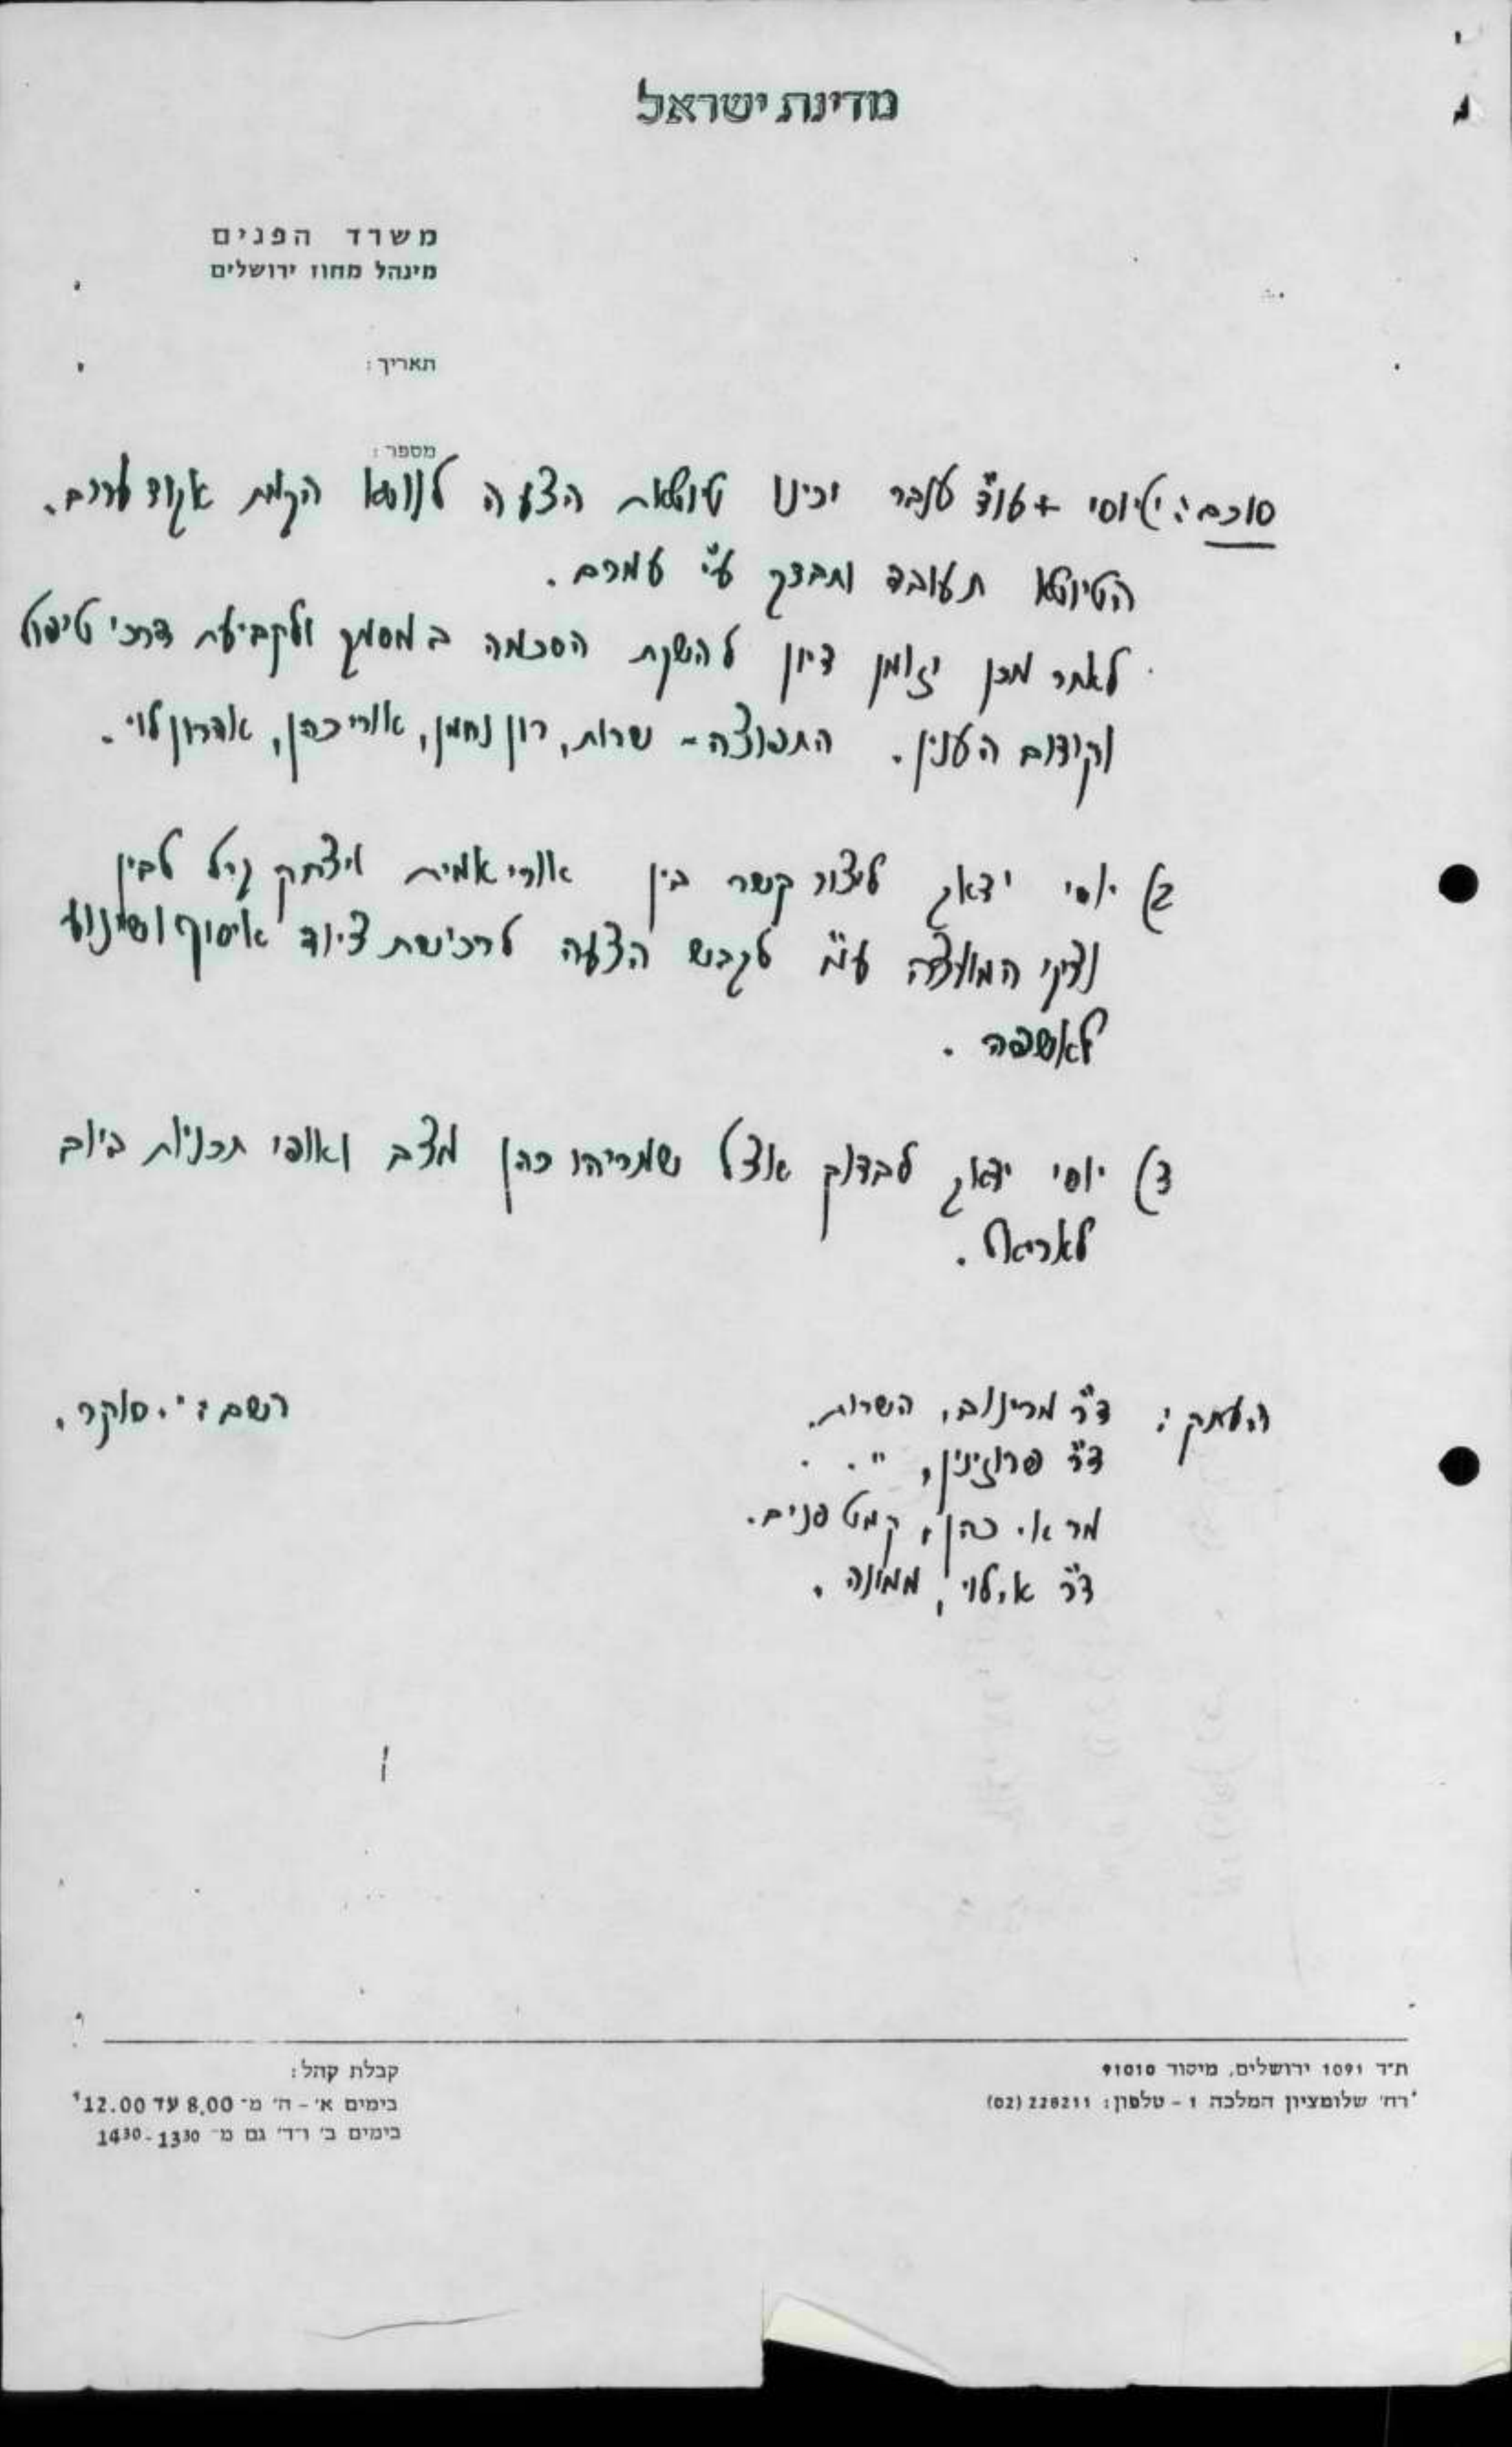 מדינת ישראל
משרד הפנים
מינהל מחוז ירושלים
תאריך:
מספר:
סוכם: יוסי + עו"ד ענבר יכינו טיוטאת הצעה לנושא הקמת איגוד ערים.
הטיוטא תעובד ותבדק ע"י עמרם.
לאחר מכן יזומן דיון להשקת הסכמה במסמך ולקביעת דרכי טיפול
וקידום הענין. התפוצה - שרות, רון נחמן, אורי כהן, אהרון לוי.
2) יוסי ידאג ליצור קשר בין אורי אמית ויצחק לבין
נציקי המועצה ע"מ לגבש הצעה לרכישת ציוד איסוף ושינוע
לאשפה.
3) יוסי ידאג לבדוק אצל שמריהו כהן מצב ואופי תכניות ביוב
לאריאל.
העתק: ד"ר מרינוב, השרות.
ד"ר ", .
מר א. כהן, קמט פנים.
ד"ר א. לוי, ממונה.
רשם: י. סוקר.
ת"ד 1091 ירושלים, מיסוד 91010
רח' שלומציון המלכה 1 - טלפון: 228211 (02)
קבלת קהל:
בימים א' - ה' מ־ 8.00 עד 12.00
בימים ב' ו־ד' גם מ־ 1330 - 1430